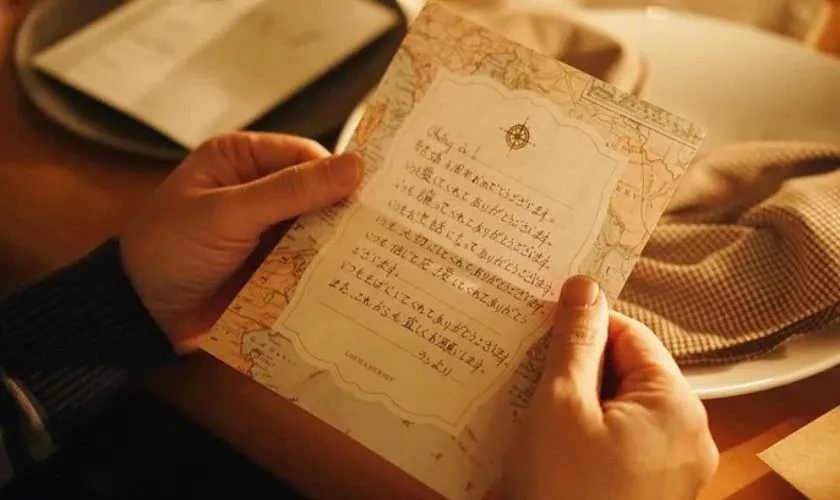 結婚 周年おめでとうございます。
いつも愛してくれてありがとうございます。
いつも ってくれてありがとうございます。
いつもお世話になってありがとうございます。
いつも大切にしてくれてありがとうございます。
いつも信じて 愛してくれてありがとう
ございます。
いつもそばにいてくれてありがとうございます。
また、これからも宜しくお願いします。
より
LIFE IS A JOURNEY